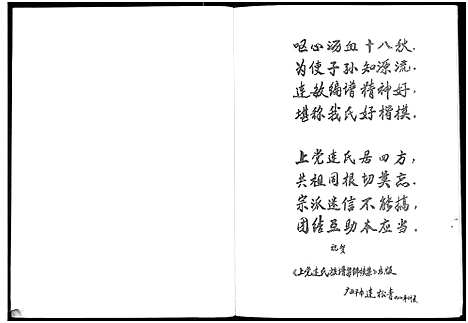 呕心沥血十八秋.
为使子孙知源流.
连敏编谱精神好,
堪称我氏好楷模.
上党连氏居四方,
共祖同根切莫忘.
宗派迷信不能搞,
团结互助本应当.
祝贺
《上党连氏族谱梁师续集》出版
连松青